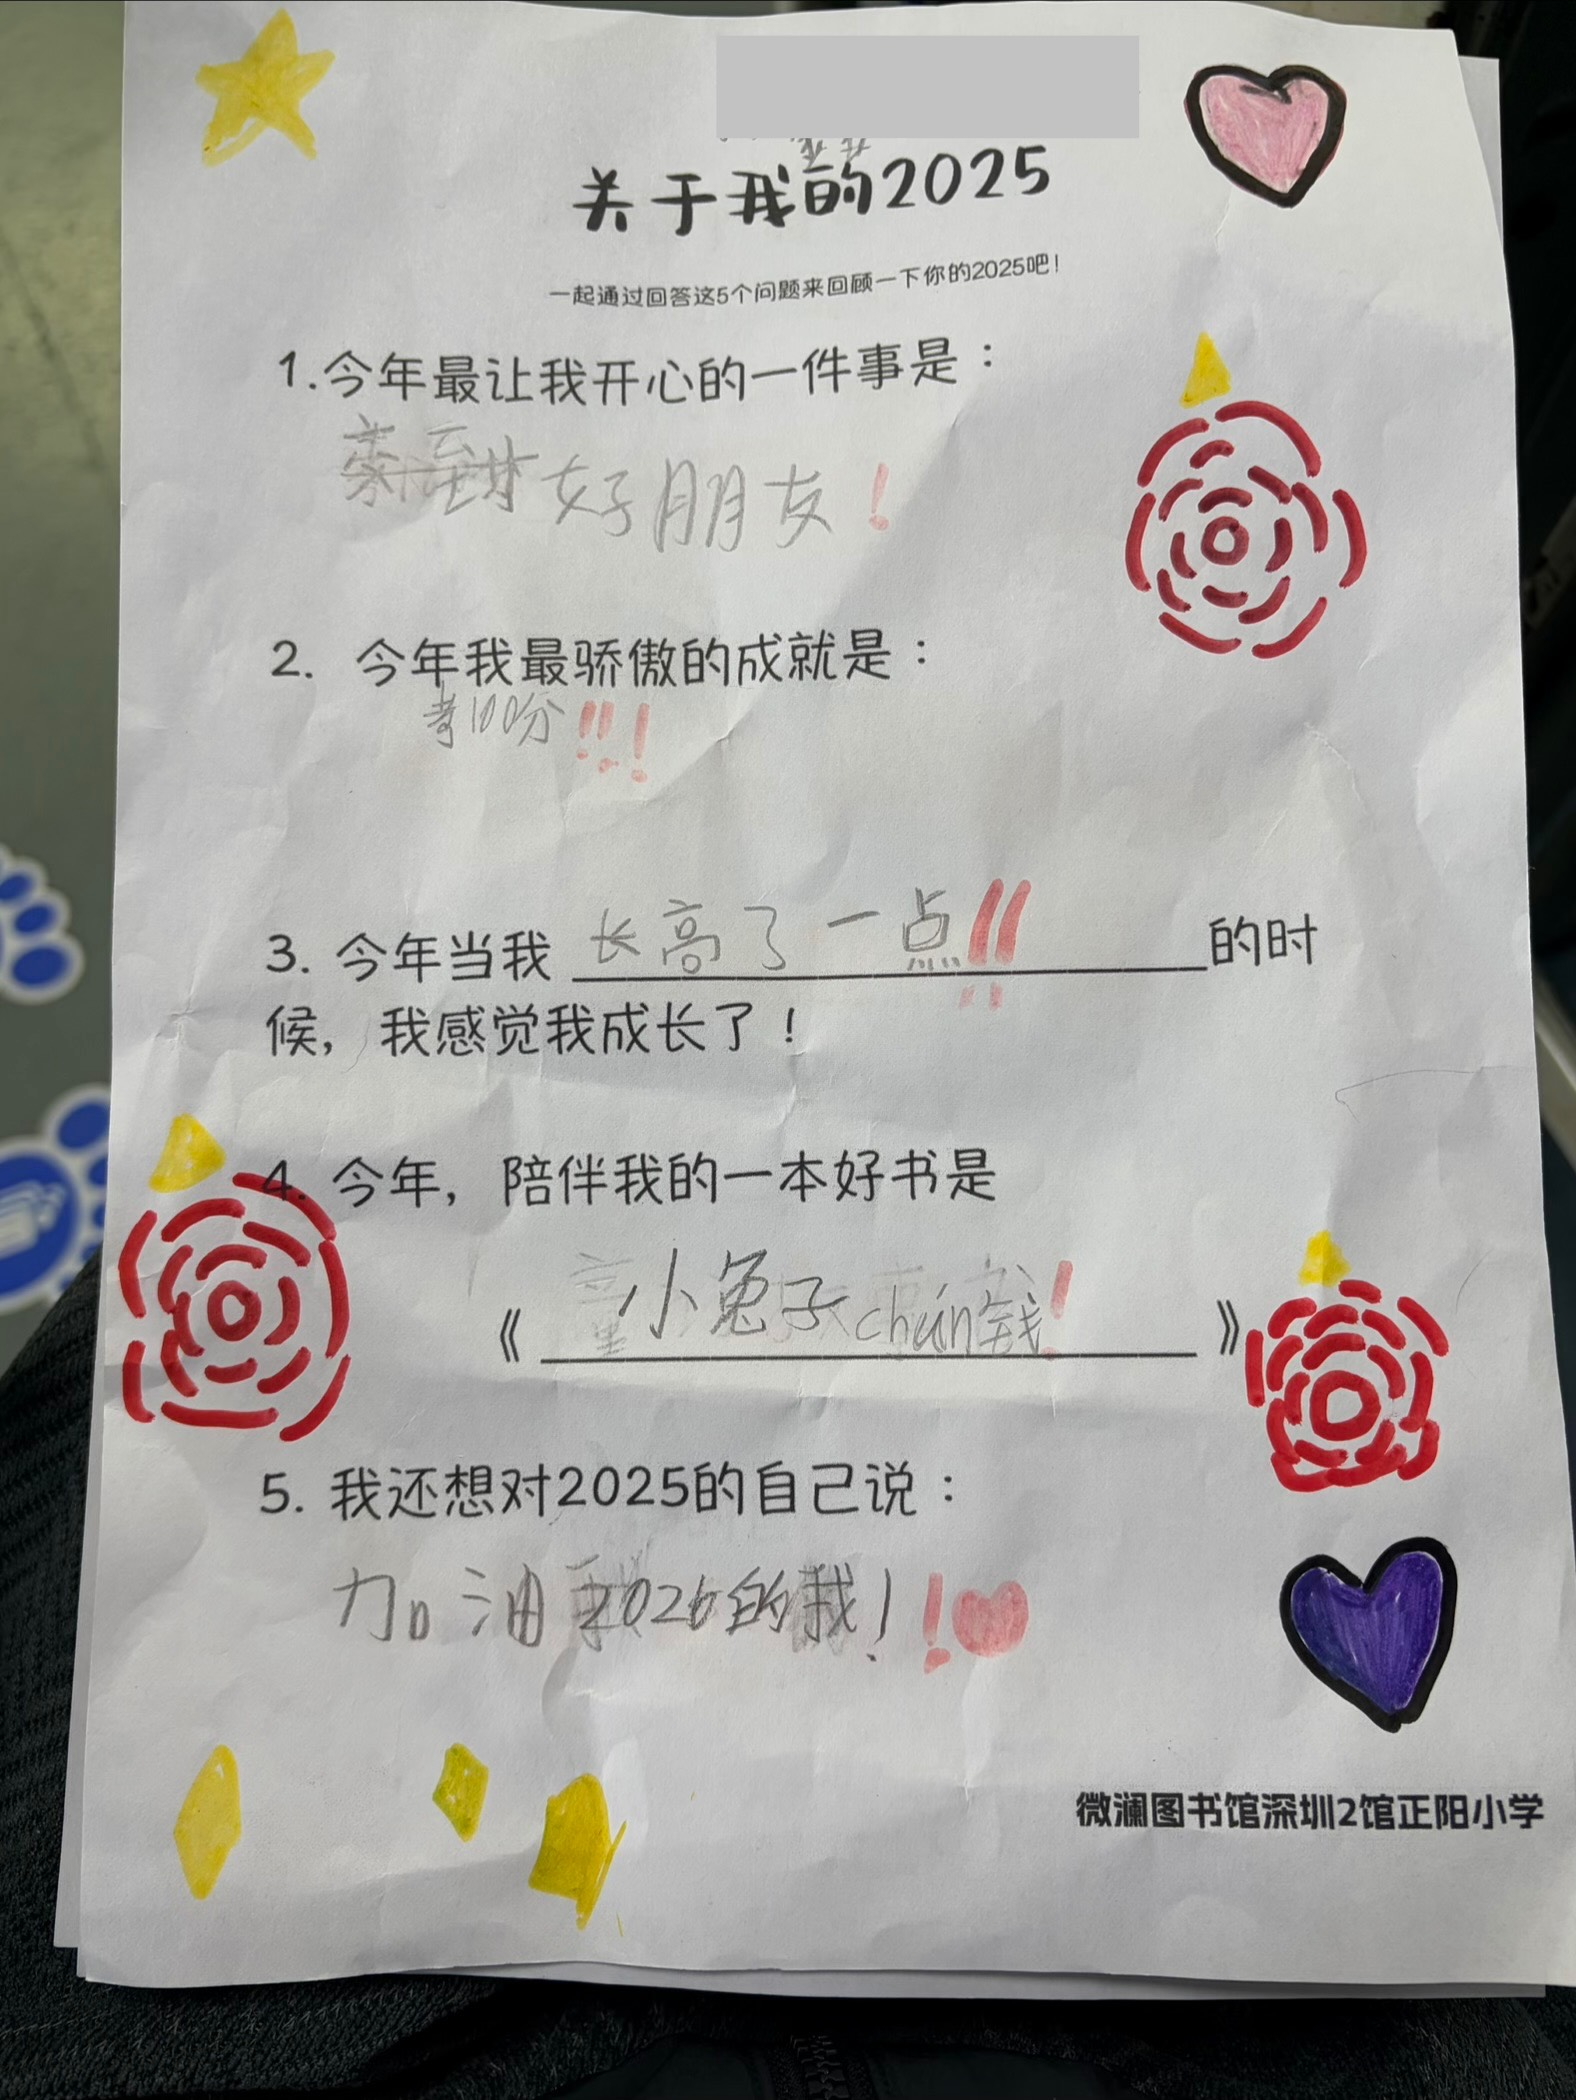 关于我的2025
一起通过回答这5个问题来回顾一下你的2025吧！
1.今年最让我开心的一件事是：
好朋友！
2. 今年我最骄傲的成就是：
考100分!!!
3. 今年当我 长高了一点!! 的时
候，我感觉我成长了！
4. 今年，陪伴我的一本好书是
《小兔子chún钱!》
5. 我还想对2025的自己说：
加油2026的我！!
微澜图书馆深圳2馆正阳小学